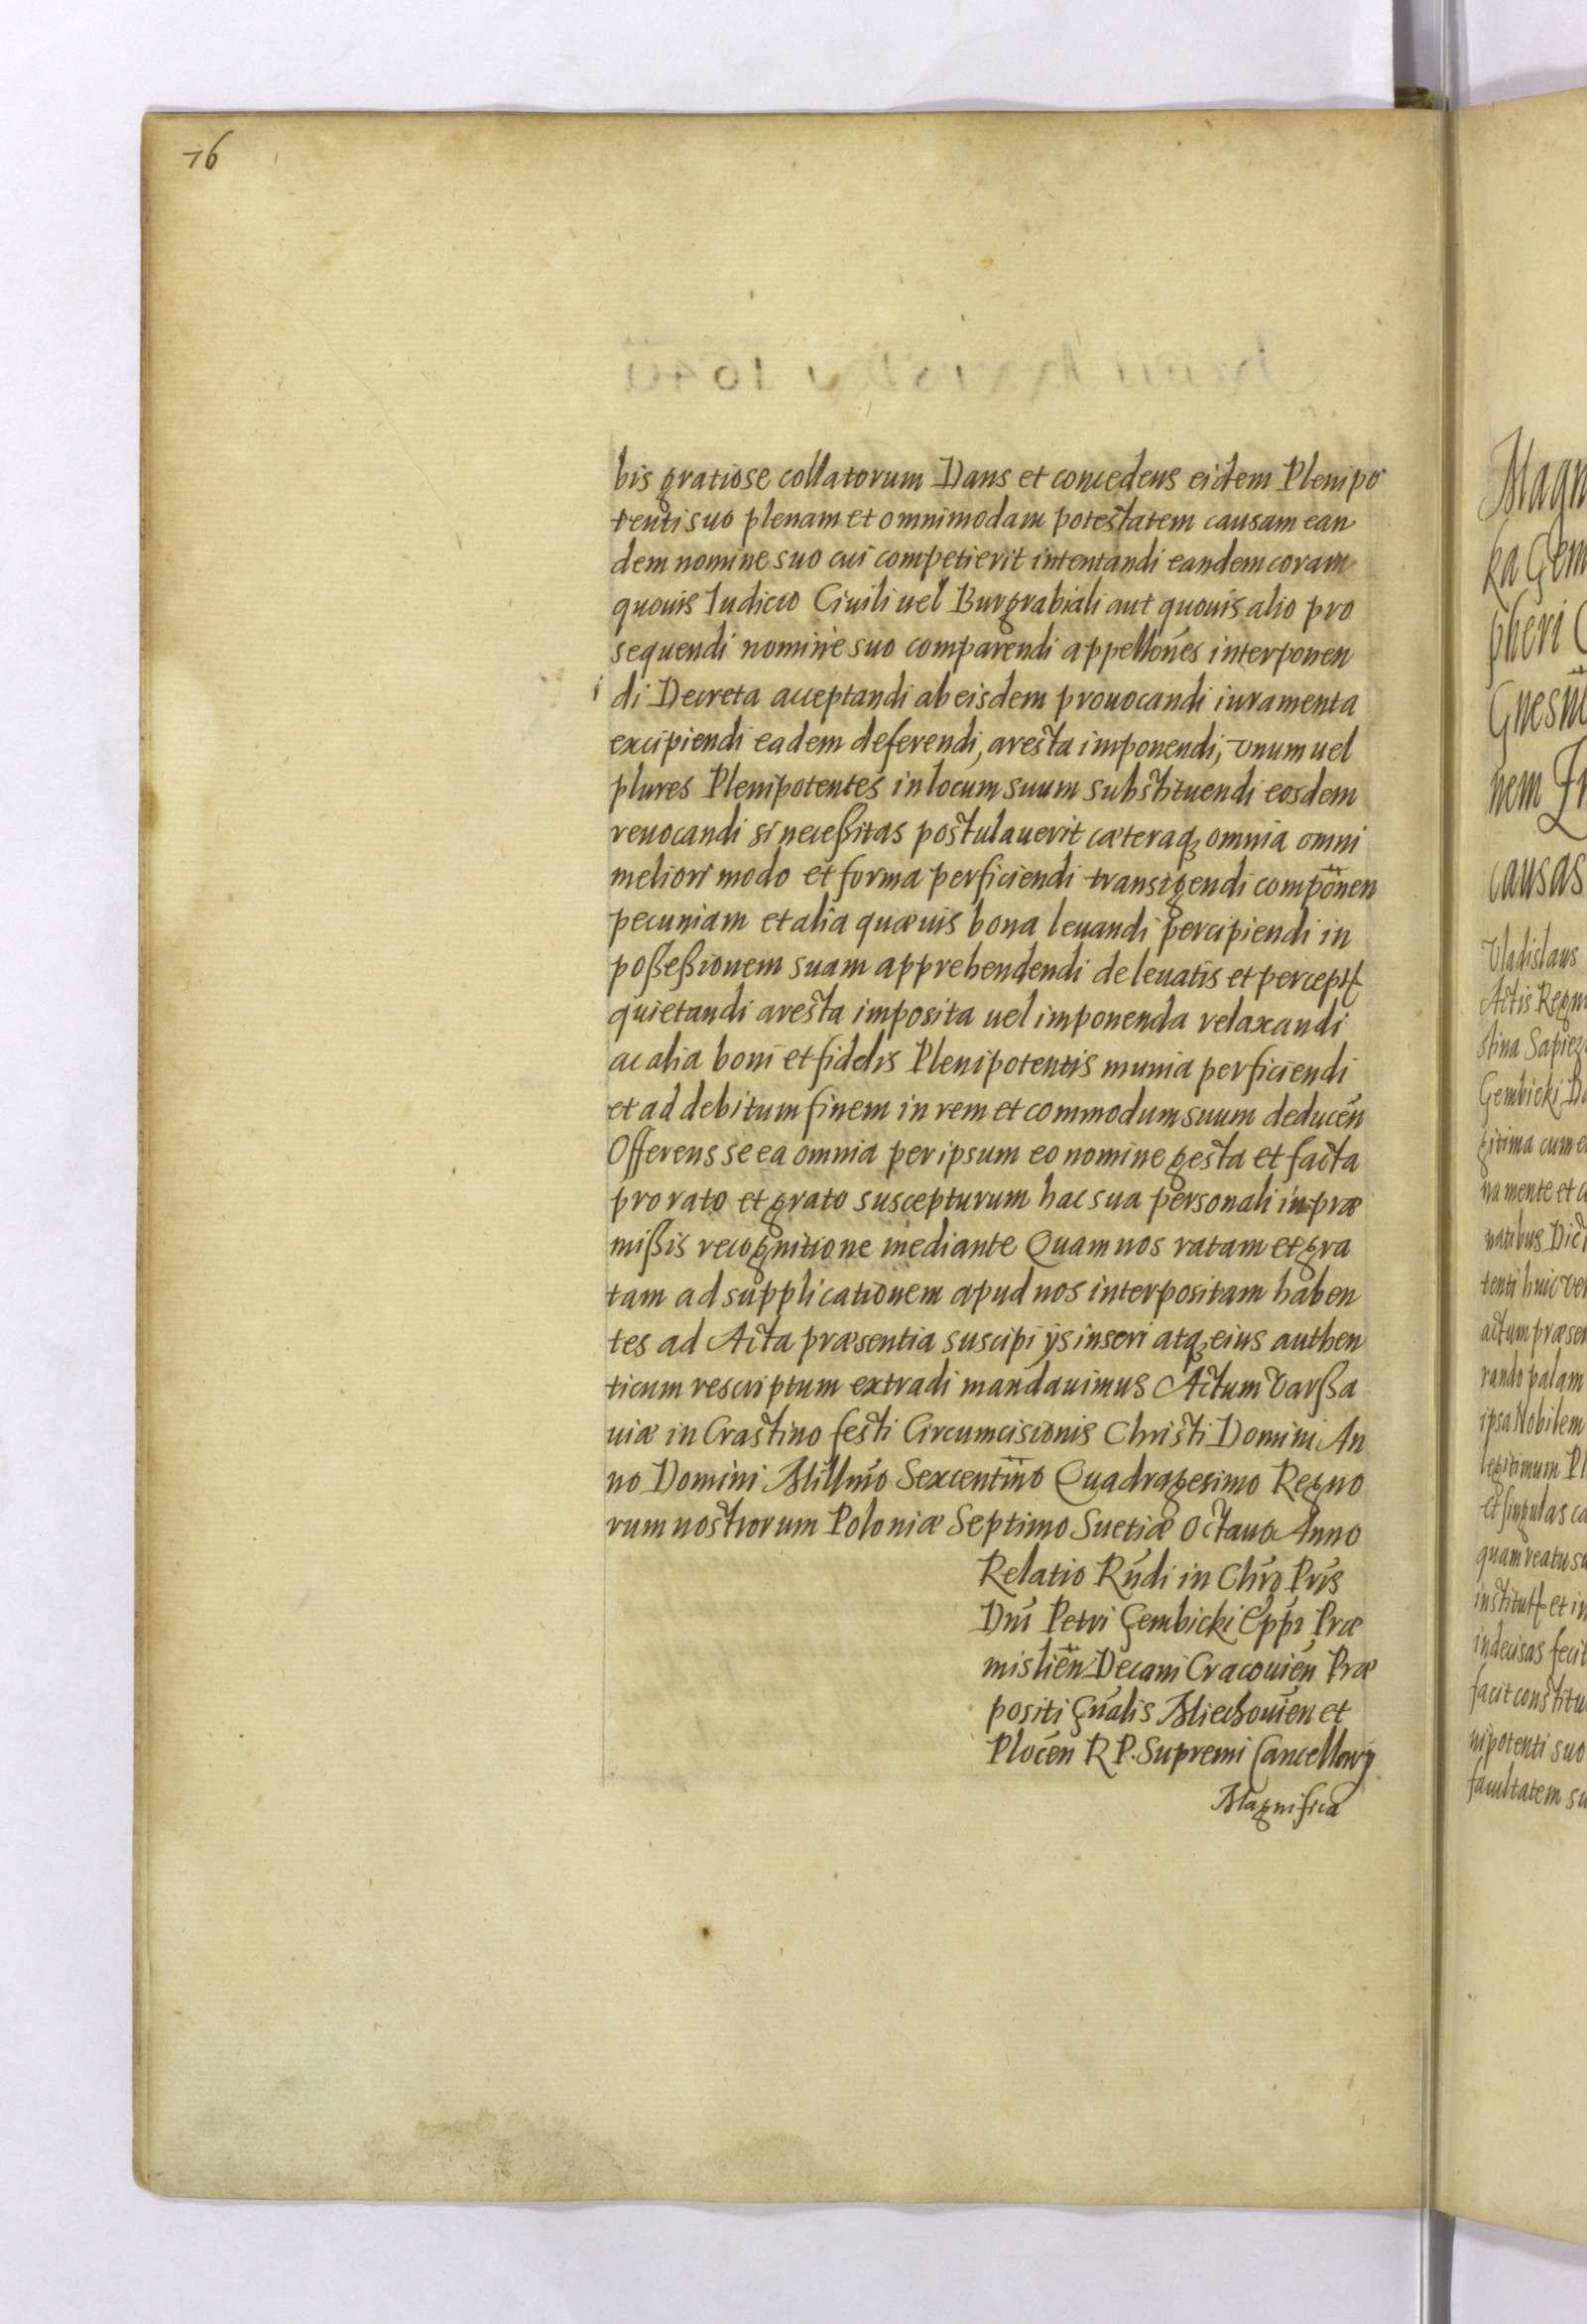 76
bis gratiose collatorum Dans et concedens eidem Plenipo
tenti suo plenam et omnimodam potestatem causam ean
dem nomine suo cui competierit intentandi eandem coram
quouis Iudicio Ciuili uel Burgrabiali aut quouis alio pro
sequendi nomine suo comparendi appellones interponen
di Decreta acceptandi ab eisdem prouocandi iuramenta
excipiendi eadem deferendi, aresta imponendi, vnum uel
plures Plenipotentes in locum suum substituendi eosdem
reuocandi si neceßitas postulauerit cæteraq omnia omni
meliori modo et forma perficiendi transigendi componen
pecuniam et alia quæuis bona leuandi percipiendi in
poßeßionem suam apprehendendi de leuatis et percept
quietandi aresta imposita uel imponenda relaxandi
ac alia boni et fidelis Plenipotentis munia perficiendi
et ad debitum finem in rem et commodum suum deducen
Offerens se ea omnia per ipsum eo nomine gesta et facta
pro rato et grato suscepturum hac sua personali in præ
mißis recognitione mediante Quam nos ratam et gra
tam ad supplicationem apud nos interpositam haben
tes ad Acta præsentia suscipi ijs inseri atq eius authen
ticum rescriptum extradi mandauimus Actum Varßa
uiæ in Crastino festi Circumcisionis Christi Domini An
no Domini Millmo Sexcentmo Quadragesimo Regno
rum nostrorum Poloniæ Septimo Suetiæ Octauo Anno
Relatio Rndi in Chro Pris
Dni Petri Gembicki Eppi Præ
mislien Decani Cracouien Præ
positi Gnalis Miechouien et
Plocen R P. Supremi Cancellarij
Magnifica
Magn
ka Gem
pheri
Gnesn
nem
causas
Vladislaus
Actis Regni
stina Sapiez
Gembicki
gitima cum e
na mente et
natibus Dict
tenti huic ver
actum præsen
rando palam
ipsa Nobilem
legitimum Pl
et singulas ca
quam reatu su
institut et in
indecisas fecit
facit constitu
nipotenti suo
facultatem su